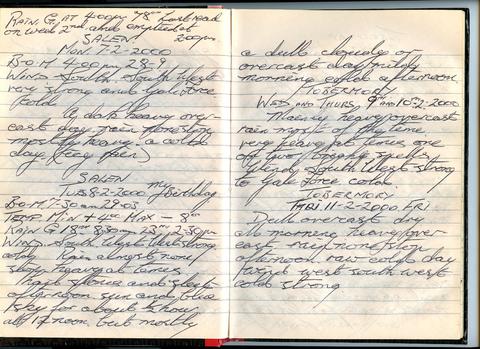 RAIN G. AT 4.00pm 78 Last read
on Wed 2nd and emptied at
SALEN. 2.00pm
MON 7-2-2000
B.O.M 4.00pm 28.9
WIND South South West
very strong and gale force.
cold
A dark heavy over-
cast day, rain none stop
mostly heavy. a cold
day
SALEN
TUES 8-2-2000 my Birthday
B.O.M 7.30am 29.03
TEMP MIN + 4 MAX — 8
RAIN G 18 8.30am 23 2.30pm
WIND South West West strong
cold Rain almost none
stop heavy at times
Hail showers and sleet
afternoon sun and blue
sky for about 2 hour
aft 12 noon but mostly
a dull cloudy or
overcast day mildly
morning cold afternoon
TOBERMORY
WED AND THURS, 9TH AND 10-2-2000
Mainly heavy overcast
rain most of the time
very heavy at times one
or two bright spells
Windy South West strong
to gale force cold
TOBERMORY
FRI 11-2-2000 FRI
Dull overcast dry
all morning heavy over
cast, rain none stop
afternoon. raw cold day
wind west south west
cold strong